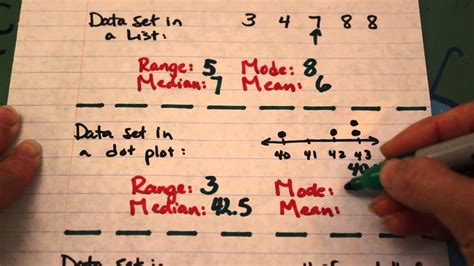 Data set in 3 4 7 8 8
a list:
Range: 5 Mode: 8
Median: 7 Mean: 6
Data set in
a dot plot: 40 41 42 43
Range: 3 Mode:
Median: 42.5 Mean:
Data set in